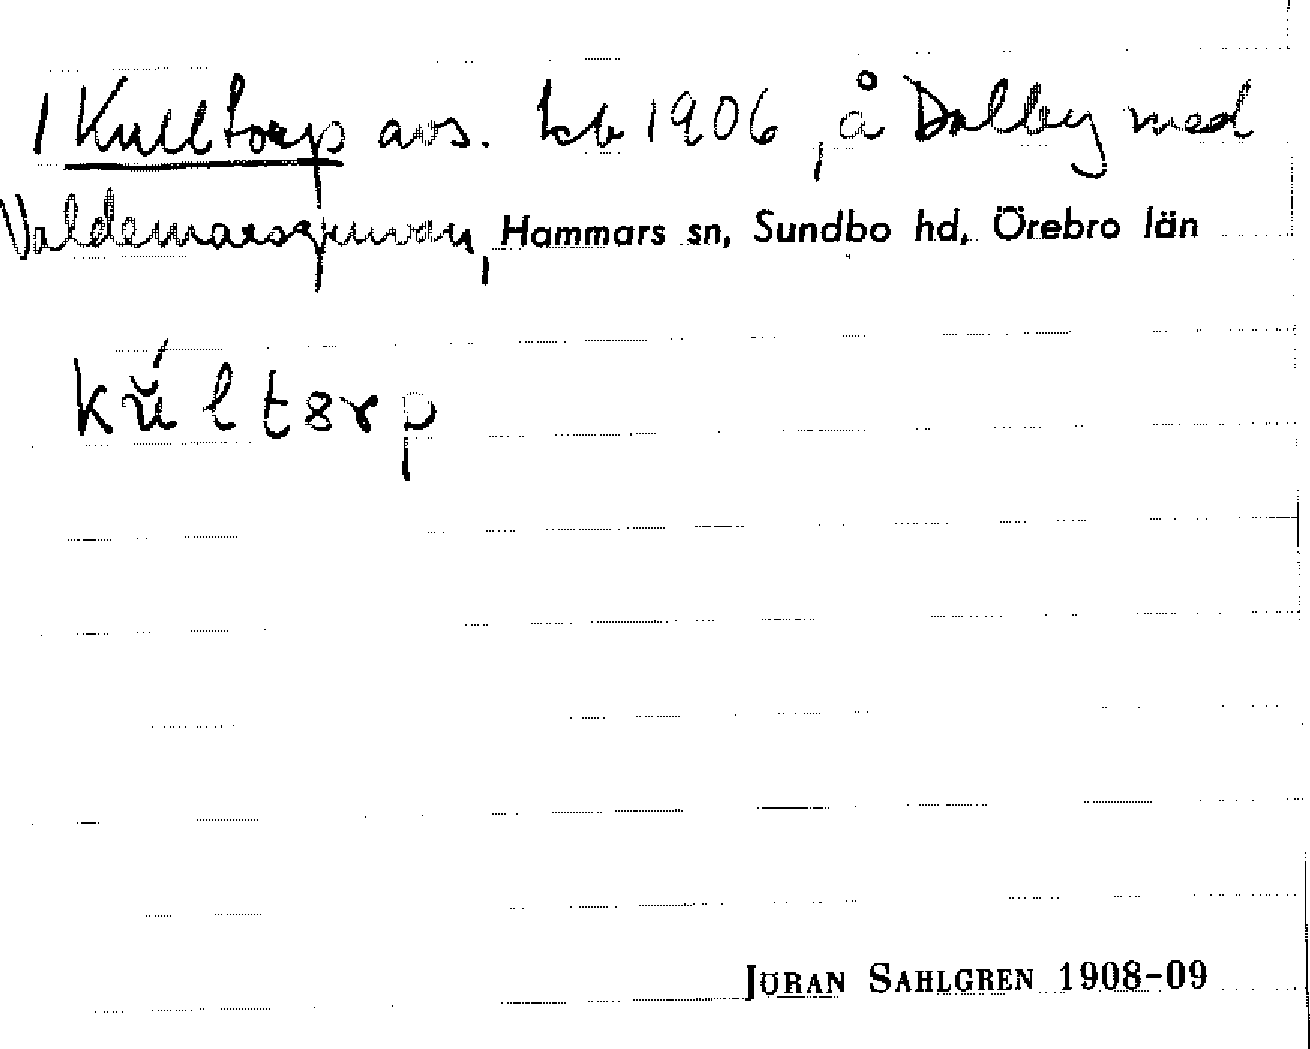 1 Kulltorp avs. kb 1906, å Dalby med
Valdemarsgruvan, Hammars sn, Sundbo hd, Örebro län
kŭ́ltsrp
JÖRAN SAHLGREN 1908-09